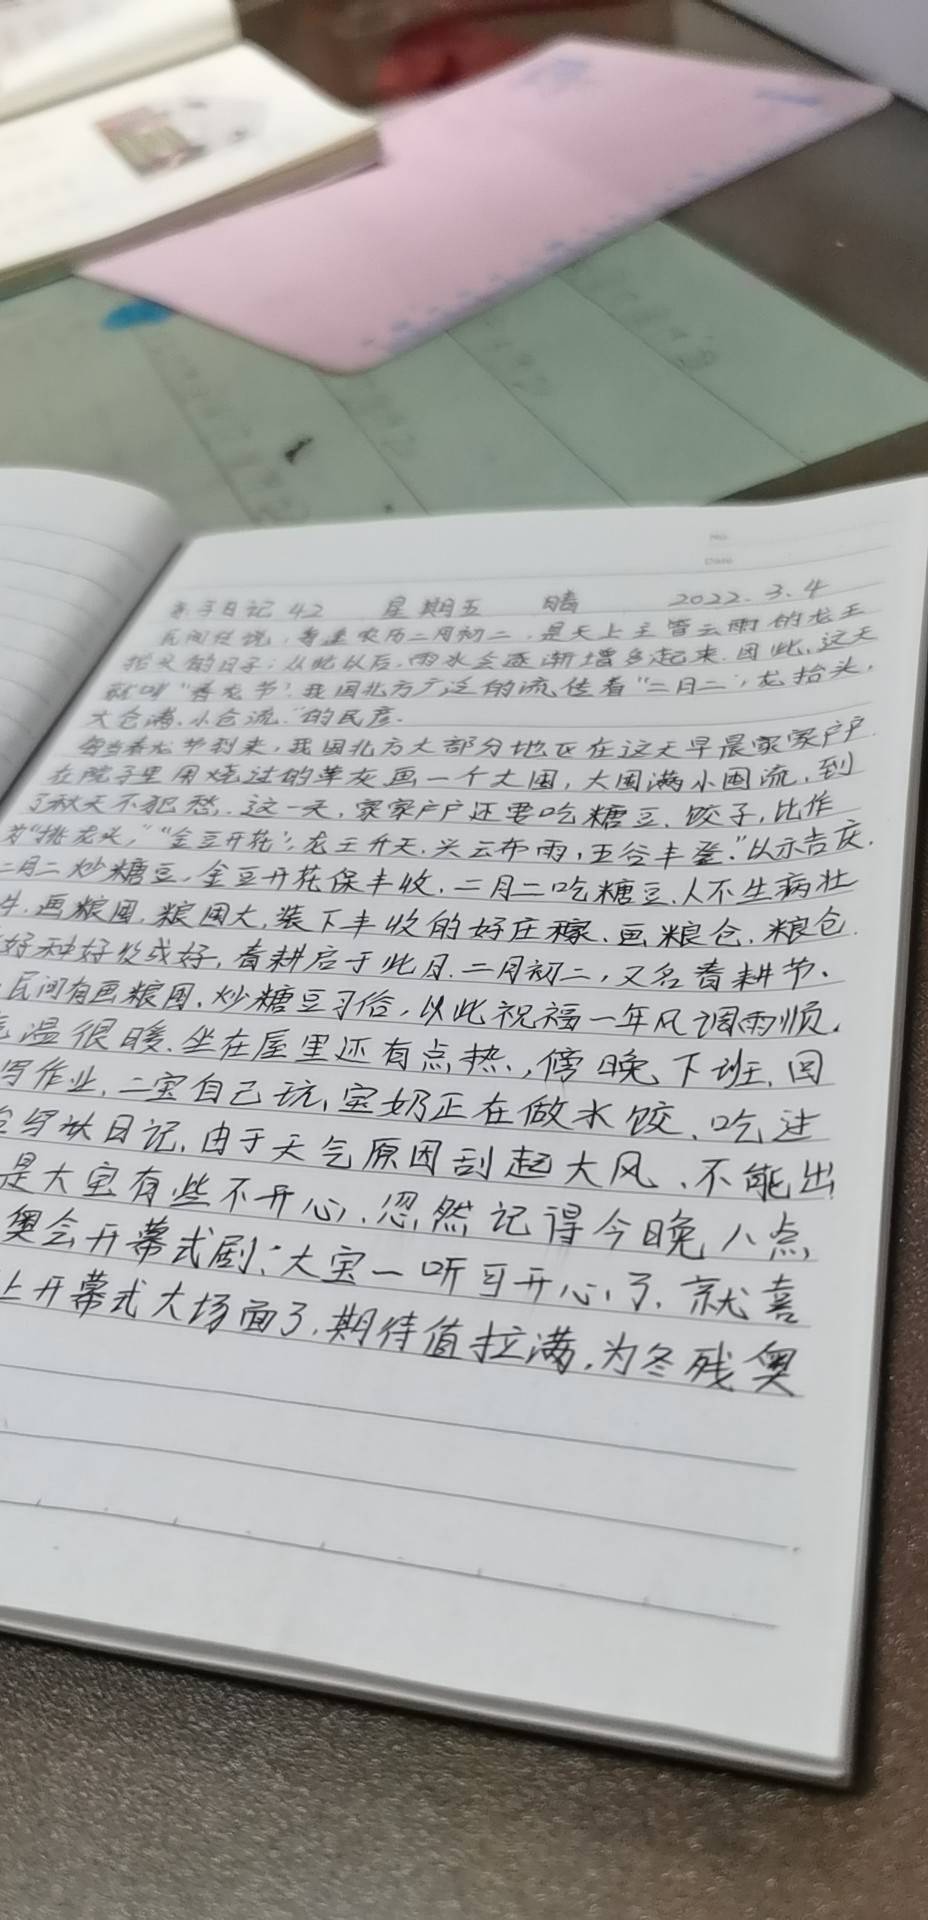 No.
Date
亲子日记 42 星期五 晴 2022.3.4
民间传说,每逢农历二月初二,是天上主管云雨的龙王
抬头的日子;从此以后,雨水会逐渐增多起来.因此,这天
就叫“春龙节”.我国北方广泛的流传着“二月二”,龙抬头,
大仓满.小仓流.”的民彦.
每当春龙节到来,我国北方大部分地区在这天早晨家家户户
在院子里用烧过的草灰画一个大囤,大囤满小囤流.到
了秋天不犯愁.这一天,家家户户还要吃糖豆.饺子,比作
为“挑龙头,”“金豆开花”,龙王升天.兴云布雨,五谷丰登.”以示吉庆.
二月二炒糖豆.金豆开花保丰收.二月二吃糖豆.人不生病壮
牛.画粮囤.粮囤大.装下丰收的好庄稼、画粮仓.粮仓.
好种好收成好,春耕启于此月.二月初二,又名春耕节、
民间有画粮囤.炒糖豆习俗,以此祝福一年风调雨顺.
温很暖.坐在屋里还有点热.,傍晚下班.回
写作业.二宝自己玩、宝奶正在做水饺、吃过
写妖日记.由于天气原因刮起大风、不能出
是大宝有些不开心.忽然记得今晚八点
奥会开幕式剧:大宝一听可开心了.就喜
上开幕式大场面了.期待值拉满.为冬残奥